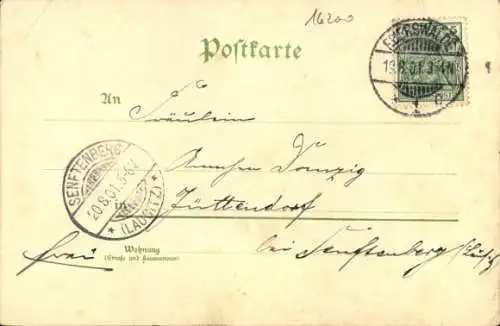 16200
Postkarte
EBERSWALDE
19.8.01.3-4N
An
Fräulein
SENFTENBERG
20.8.01.
* (LAUSITZ) *
Danzig
in Züttendorf
Wohnung
(Straße und Hausnummer)
frei
bei Senftenberg